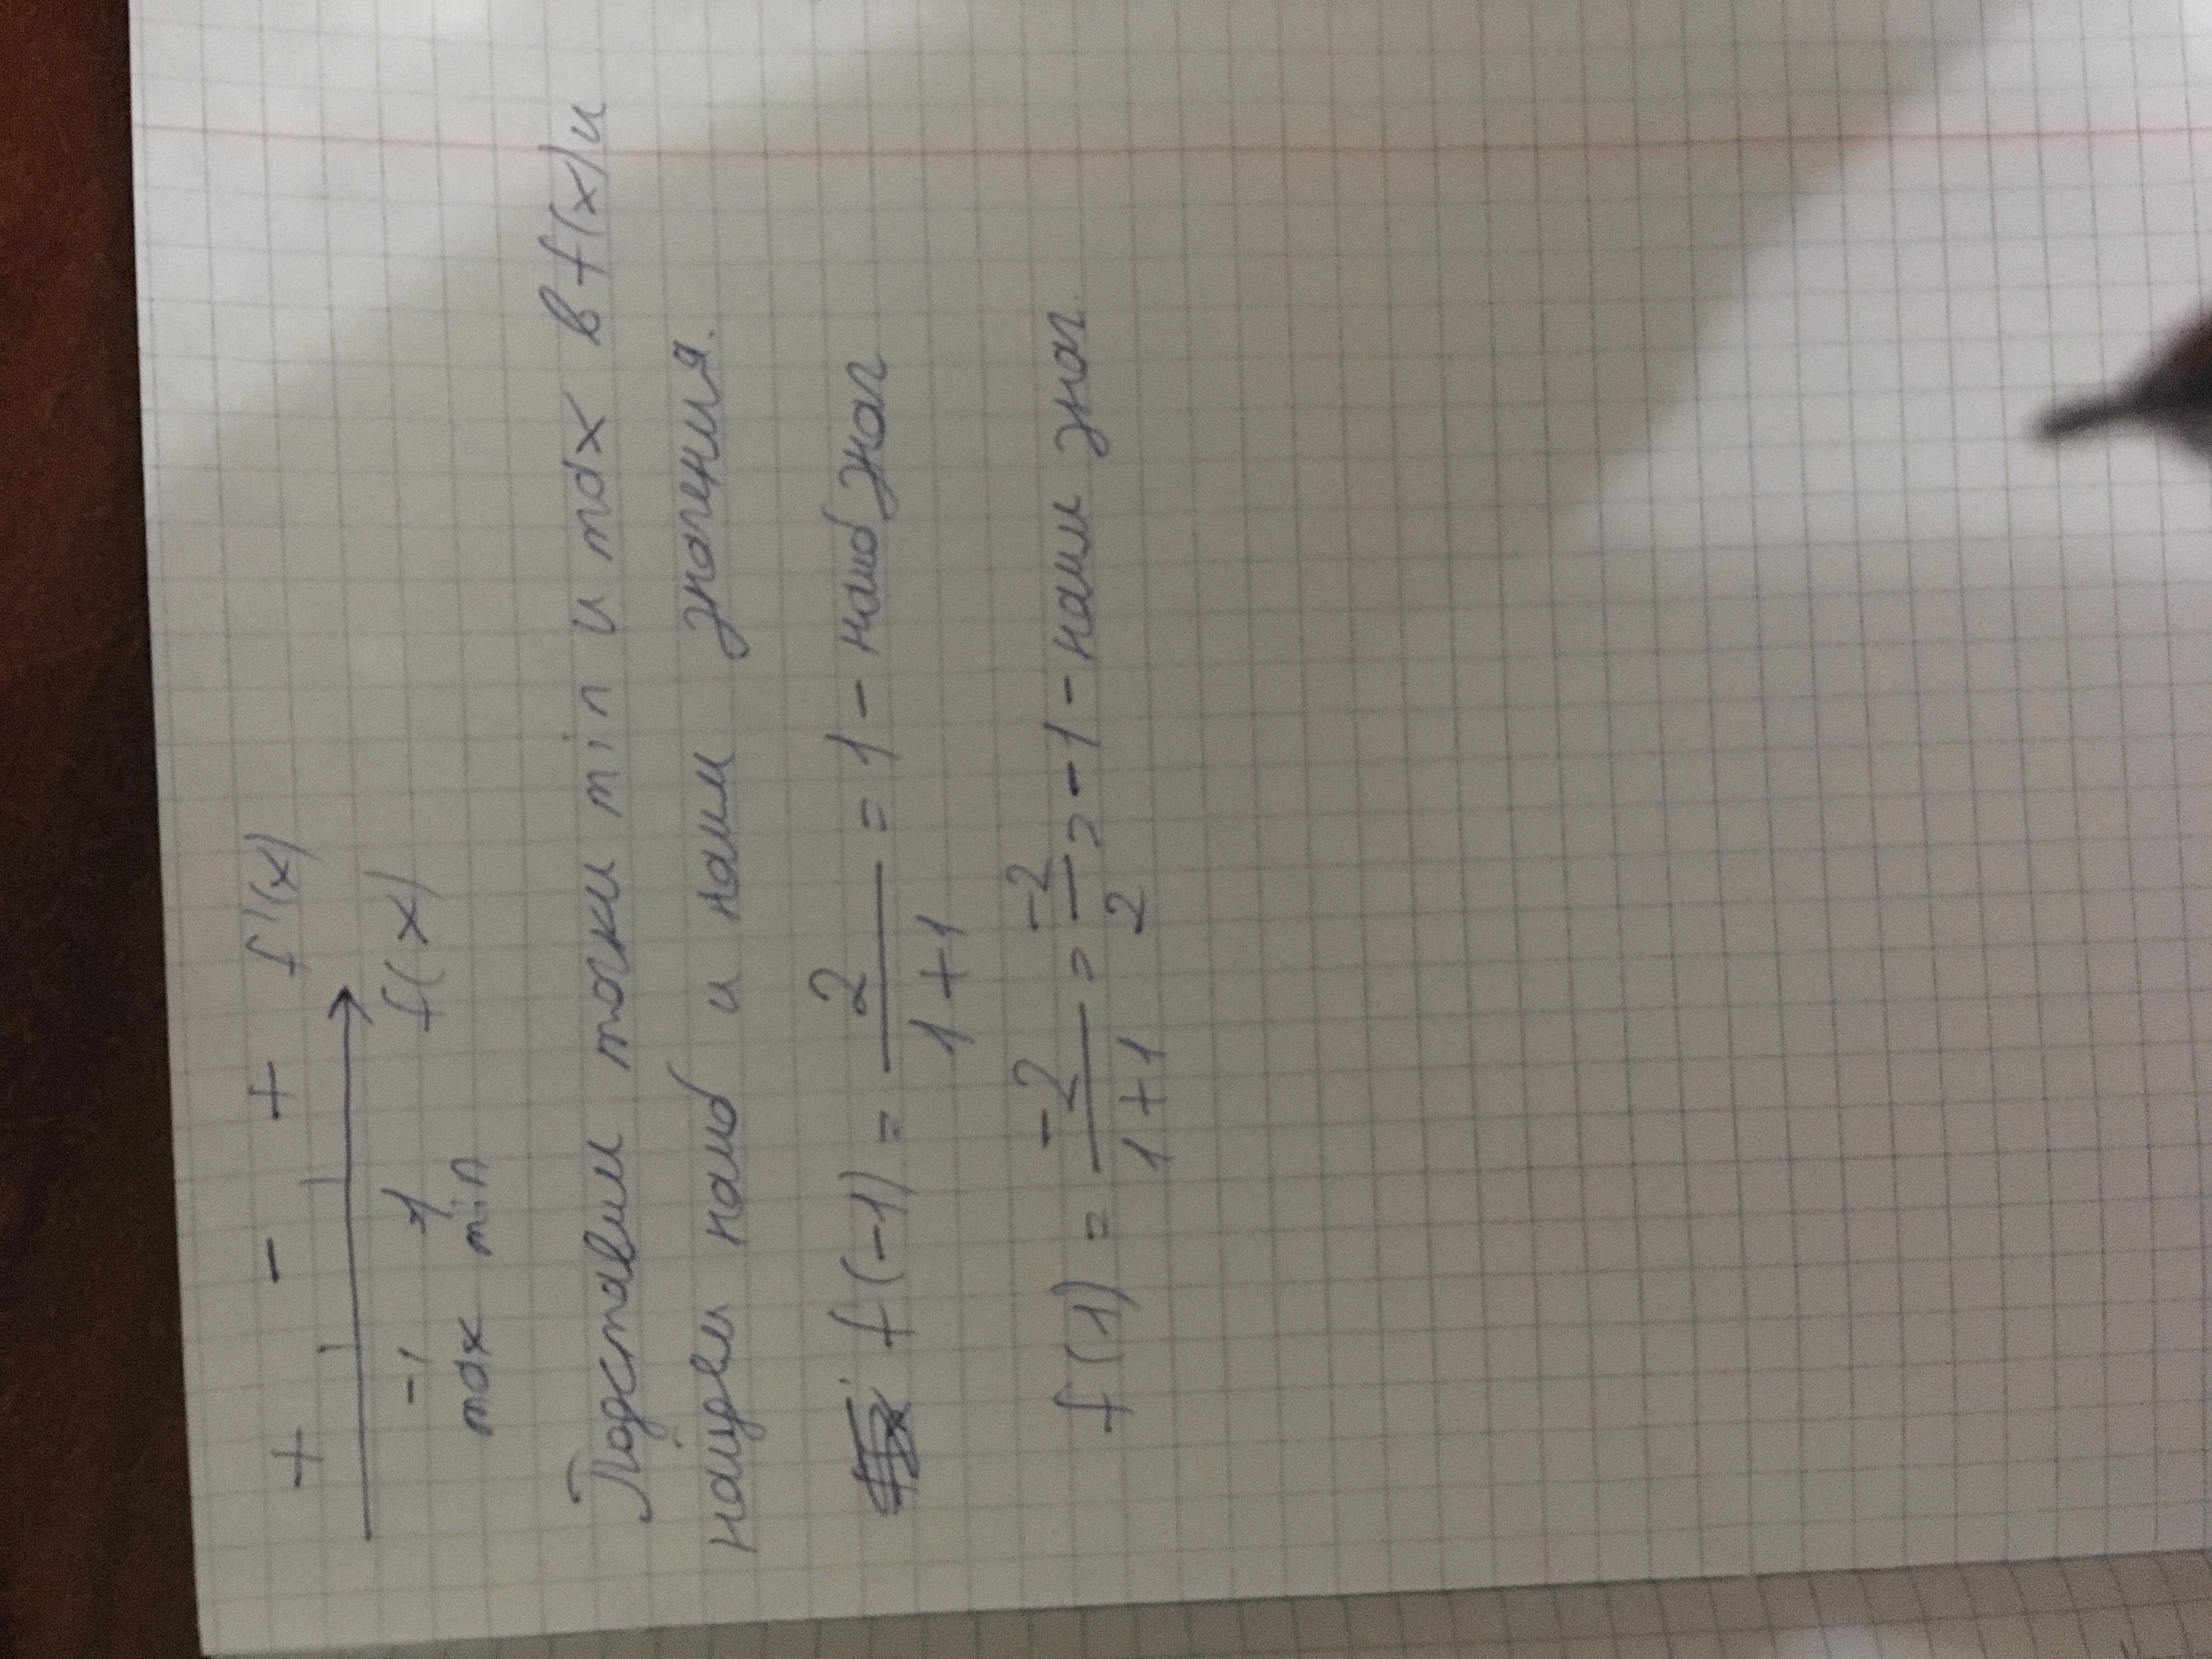 + - + f'(x)
-1 1 f(x)
max min
Подставим точки min и max в f(x) и
найдем наиб и наим значения.
f(-1) = 2/(1+1) = 1 - наиб знач
f(1) = -2/(1+1) = -2/2 = -1 - наим знач.